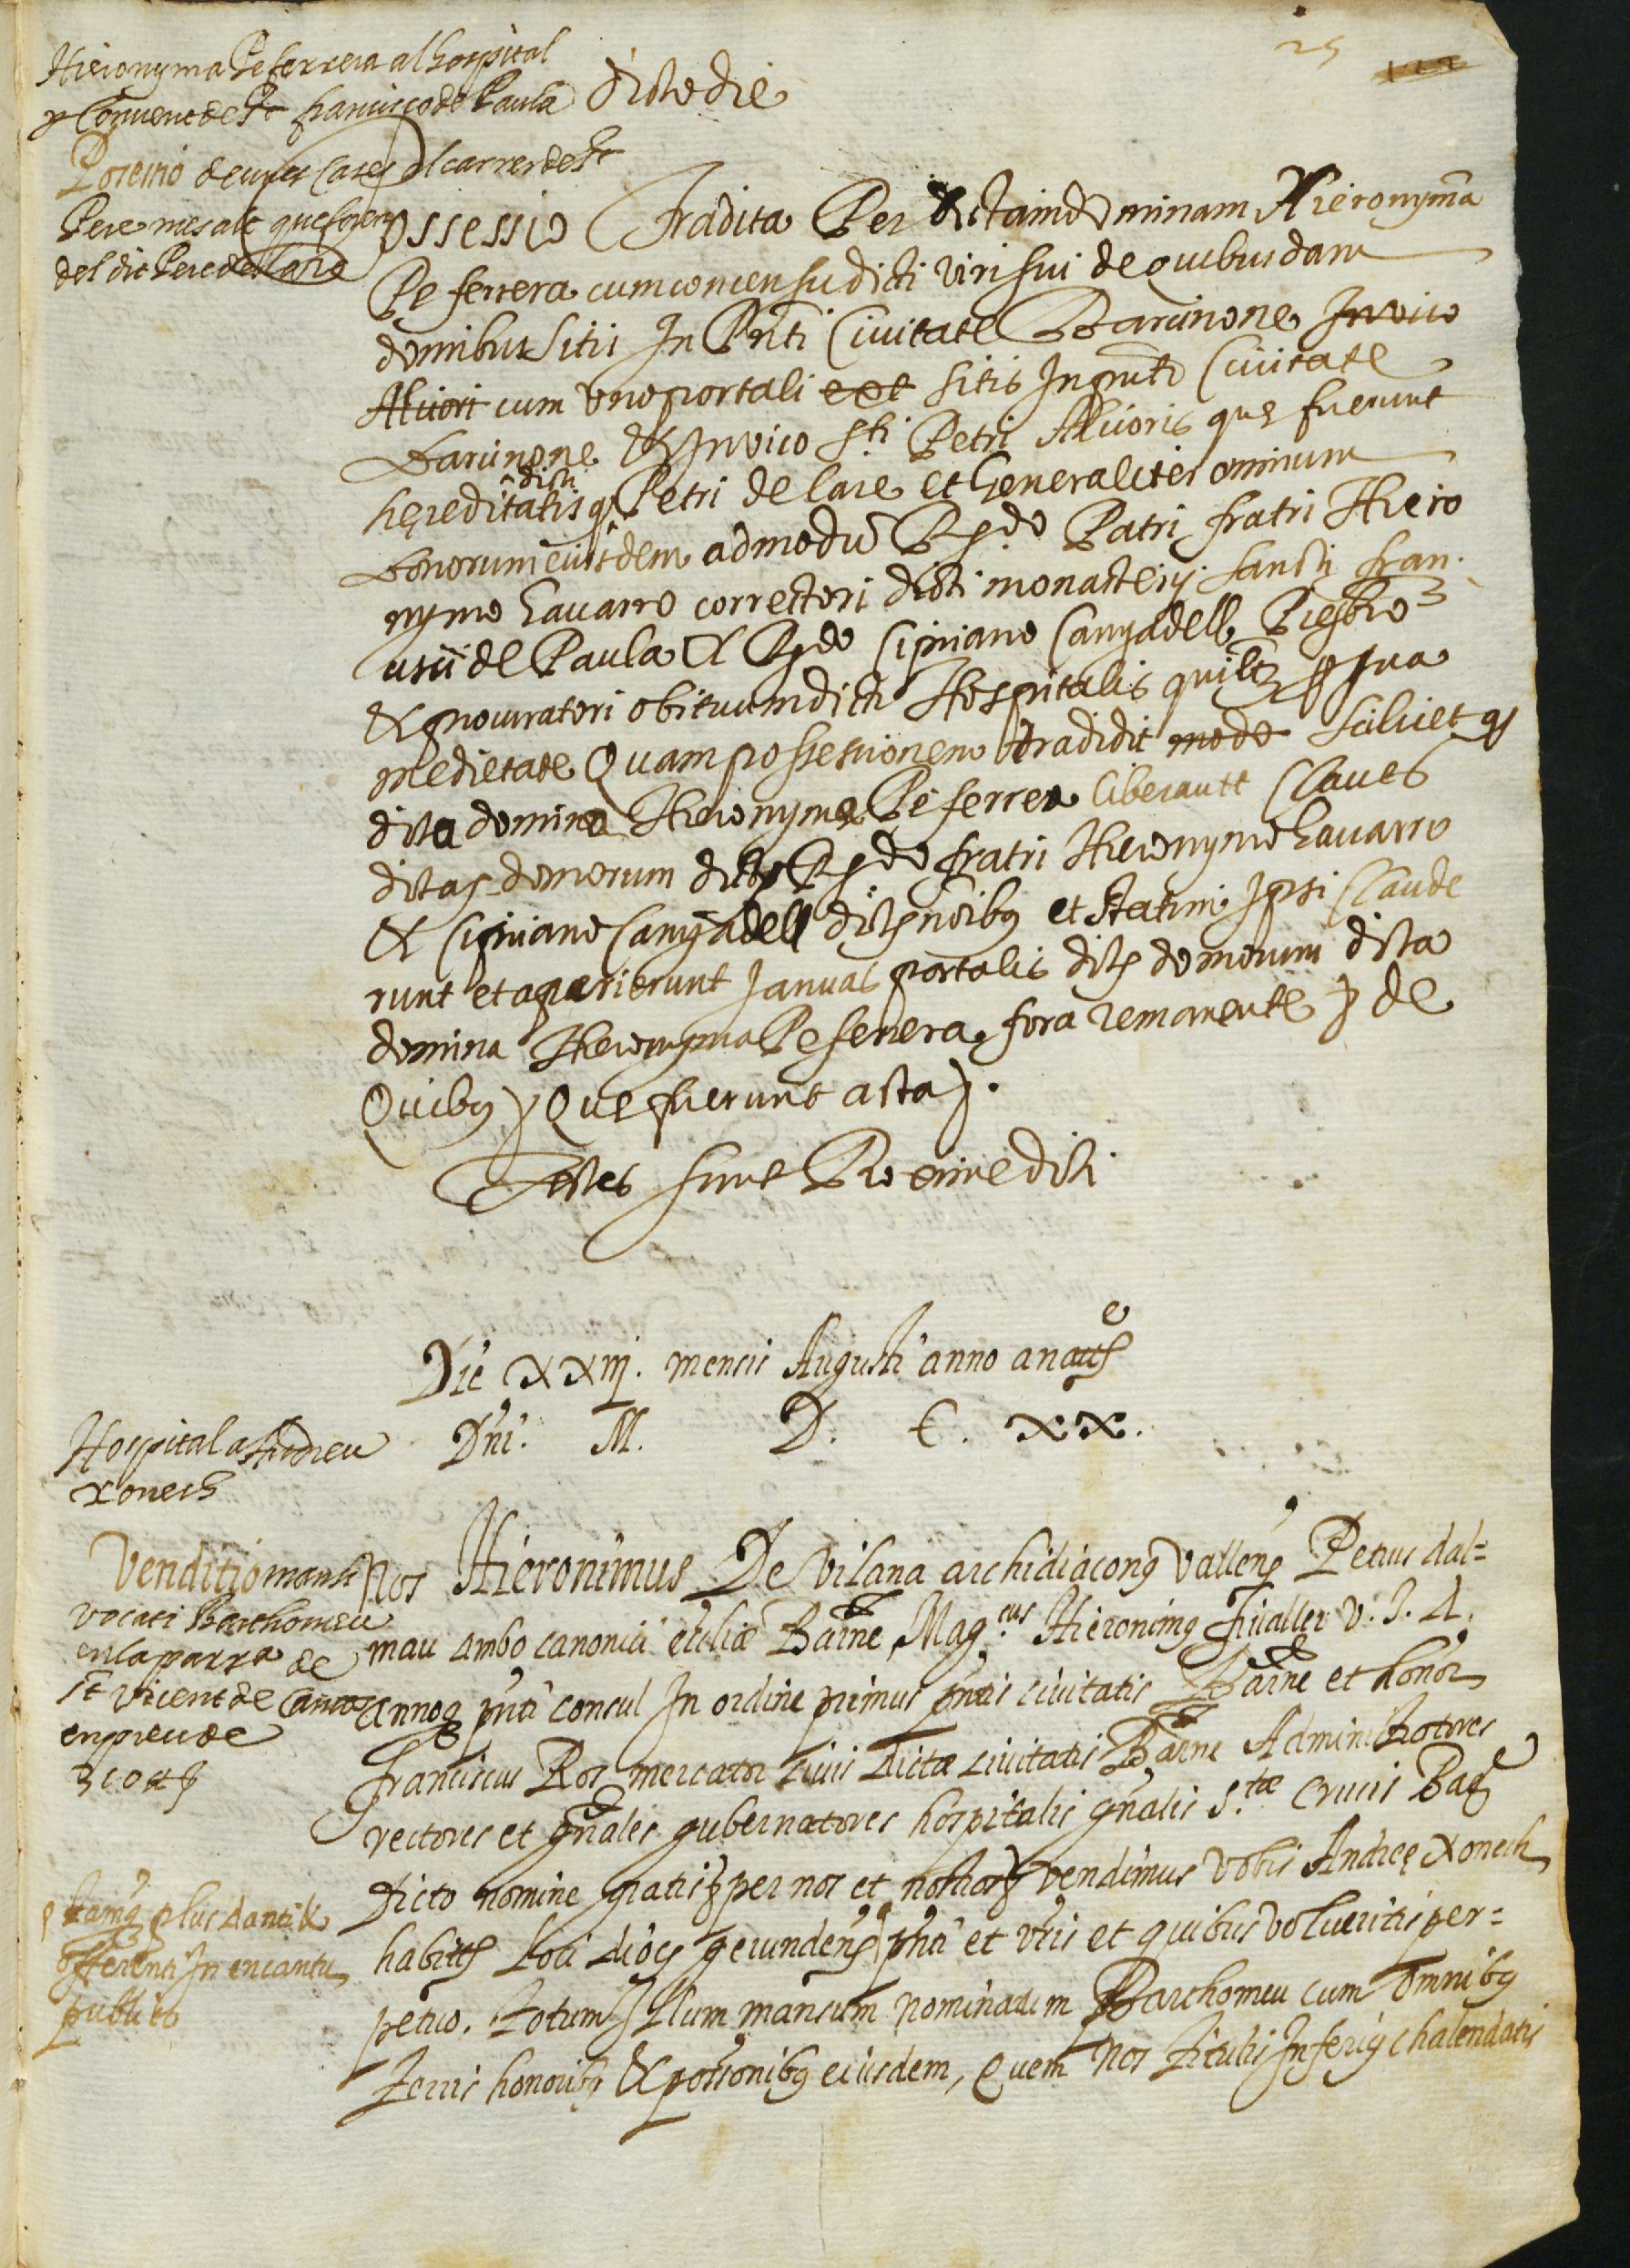 25
Hieronyma Peferrera al hospital
y Convent de St franciscode Paula
Dicto die
Possessio de unes Cases al carrer de St
Pere mes alt que foren
del dit Pere de Lare
Possessio Tradita Per dictam dominam Hieronymã
Peferrera cum concensu dicti viri sui de quibusdam
domibus sitis In Pnti Civitate Barcinone In vico
Altiori cum uno portali sitis In pnti Civitate
Barcinone & In vico Sti Petri Altioris que fuerunt
hereditatis dicti q Petri de Lare et Generaliter omnium
bonorum eiusdem admodũ Rdo Patri fratri Hiero
nymo Navarro correctori dicti monasterij Sancti fran
cisii de Paula & Rdo Cipriano Canyadell Presbro
& procuratori obituum dicti Hospitalis quilt p sua
medietate Quam possessionem tradidit modo scilicet q
dicta domina Hieronyma Peferrera liberavit Claves
dictas domorum dictis Rdo fratri Hieronymo Navarro
& Cipriano Canyadell dictis noibus et statim Ipsi Claude
runt et aperierunt Januas portalis dicts domorum dicta
domina Hieronyma Peferrera fora remanente de
Quibus Que fuerunt acta.
Testes sunt Proxime dicti
Die xxiij. mensis Augusti anno a natte
Dni. M. D. C. xx.
Hospital a Andreu
Xonech
Venditio mansi
vocati Barthomeu
en la parra de
St Vicent de Camos
en preu de
Nos Hieronimus De Vilana archidiaconus Vallens Petrus dal=
mau ambo canonici ecclie Barne, Magcus Hieronimus Fivaller V. J. D.
annoq pnti consul In ordine primus pntis civitatis Barne et honor
Franciscus Ros mercator civis dictæ civitatis Barne Administratores
rectores et gnales gubernatores hospitalis gnalis S.tæ Crucis Bar
Dicto nomine gratis per nos et nostros vendimus Vobis Andreę Xonech
ptamq plus danti &
offerenti In encantu
publico
habitts Loci diocs gerundens pnti et vris et quibus volueritis per=
petuo. Totum Illum mansum nominatum Barthomeu cum omnibus
terris honoribus & possonibus eiusdem, Quem Nos titulis Inferius chalendatis